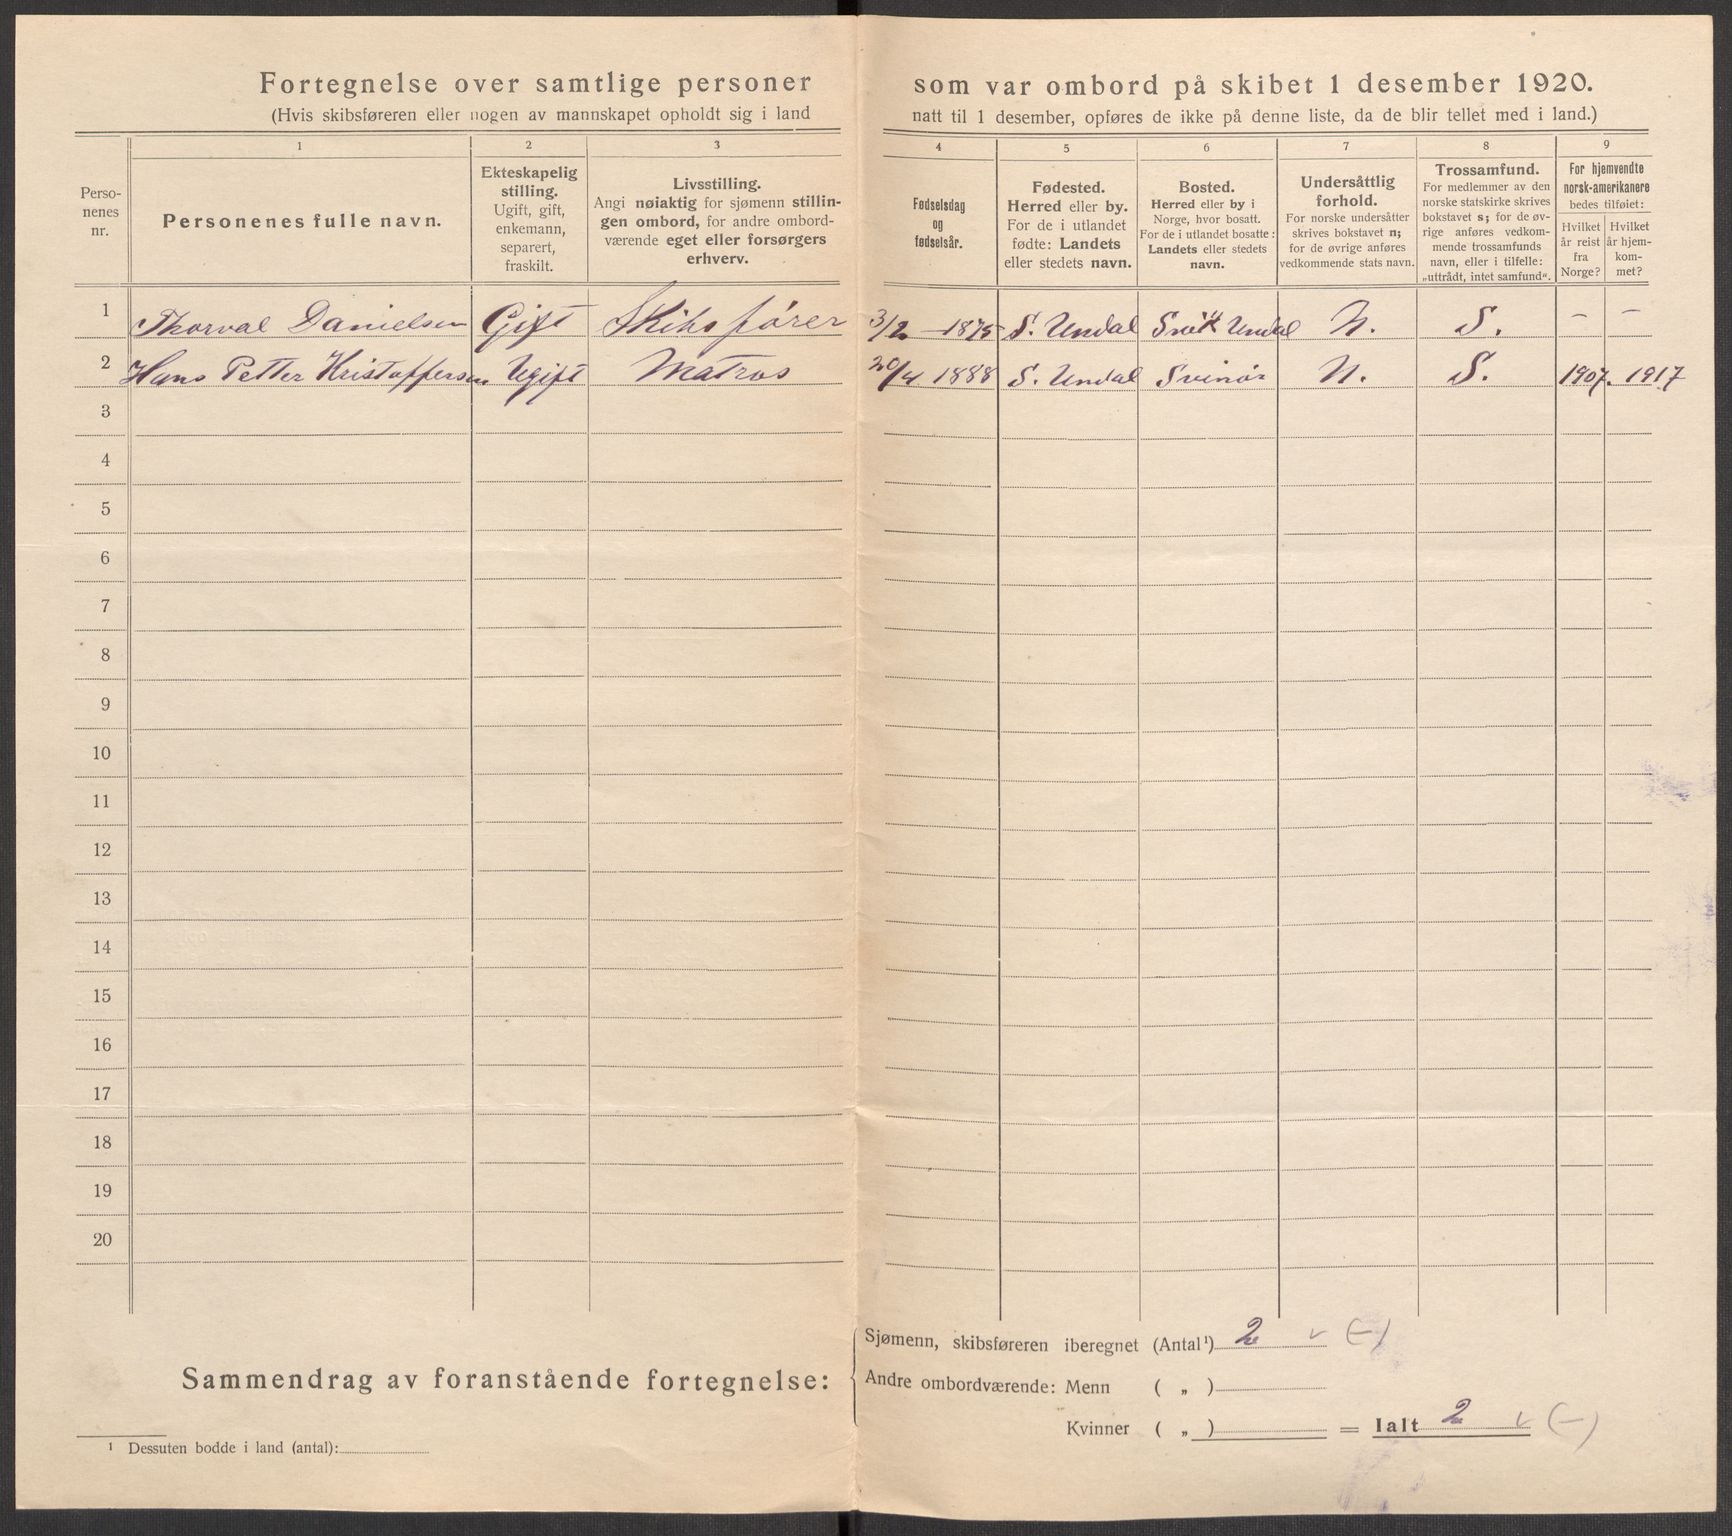 Fortegnelse over samtlige personer som var ombord på skibet 1 desember 1920.
(Hvis skibsføreren eller nogen av mannskapet opholdt sig i land natt til 1 desember, opføres de ikke på denne liste, da de blir tellet med i land.)
1 2 3 4 5 6 7 8 9
Perso-
nenes
nr.
Personenes fulle navn.
Ekteskapelig
stilling.
Ugift, gift,
enkemann,
separert,
fraskilt.
Livsstilling.
Angi nøiaktig for sjømenn stillin-
gen ombord, for andre ombord-
værende eget eller forsørgers
erhverv.
Fødselsdag
og
fødselsår.
Fødested.
Herred eller by.
For de i utlandet
fødte: Landets
eller stedets navn.
Bosted.
Herred eller by i
Norge, hvor bosatt.
For de i utlandet bosatte:
Landets eller stedets
navn.
Undersåttlig
forhold.
For norske undersåtter
skrives bokstavet n;
for de øvrige anføres
vedkommende stats navn.
Trossamfund.
For medlemmer av den
norske statskirke skrives
bokstavet s; for de øv-
rige anføres vedkom-
mende trossamfunds
navn, eller i tilfelle:
„uttrådt, intet samfund“.
For hjemvendte
norsk-amerikanere
bedes tilføiet:
Hvilket
år reist
fra
Norge?
Hvilket
år hjem-
kom-
met?
1 Thorval Danielsen Gift Skibsfører 3/2 - 1875 S. Undal Undal N. S. – –
2 Hans Petter Kristoffersen Ugift Matros 20/4 1888 S. Undal Svinör N. S. 1907. 1917
3
4
5
6
7
8
9
10
11
12
13
14
15
16
17
18
19
20
Sammendrag av foranstående fortegnelse:
Sjømenn, skibsføreren iberegnet (Antal¹) 2 v (–)
Andre ombordværende: Menn ( „ )
Kvinner ( „ ) = Ialt 2 v (–)
¹ Dessuten bodde i land (antal):